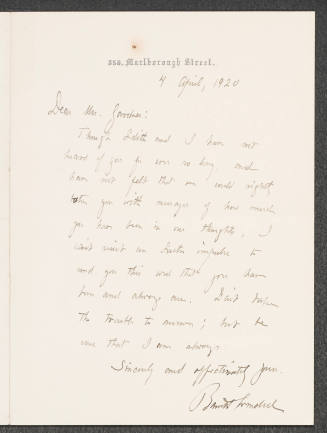 358. Marlborough Street.
4 April, 1920
Dear Mrs. Gardner:
Though Edith and I have not
heard of you for ever so long and
have not felt that we could rightly
you with messages of how much
you have been in our thoughts, I
can't resist an Easter impulse to
send you this word that you have
been and always are. Don't take
the trouble to answer; but be
sure that I am always
Sincerely and affectionately yours.
Barrett Wendell